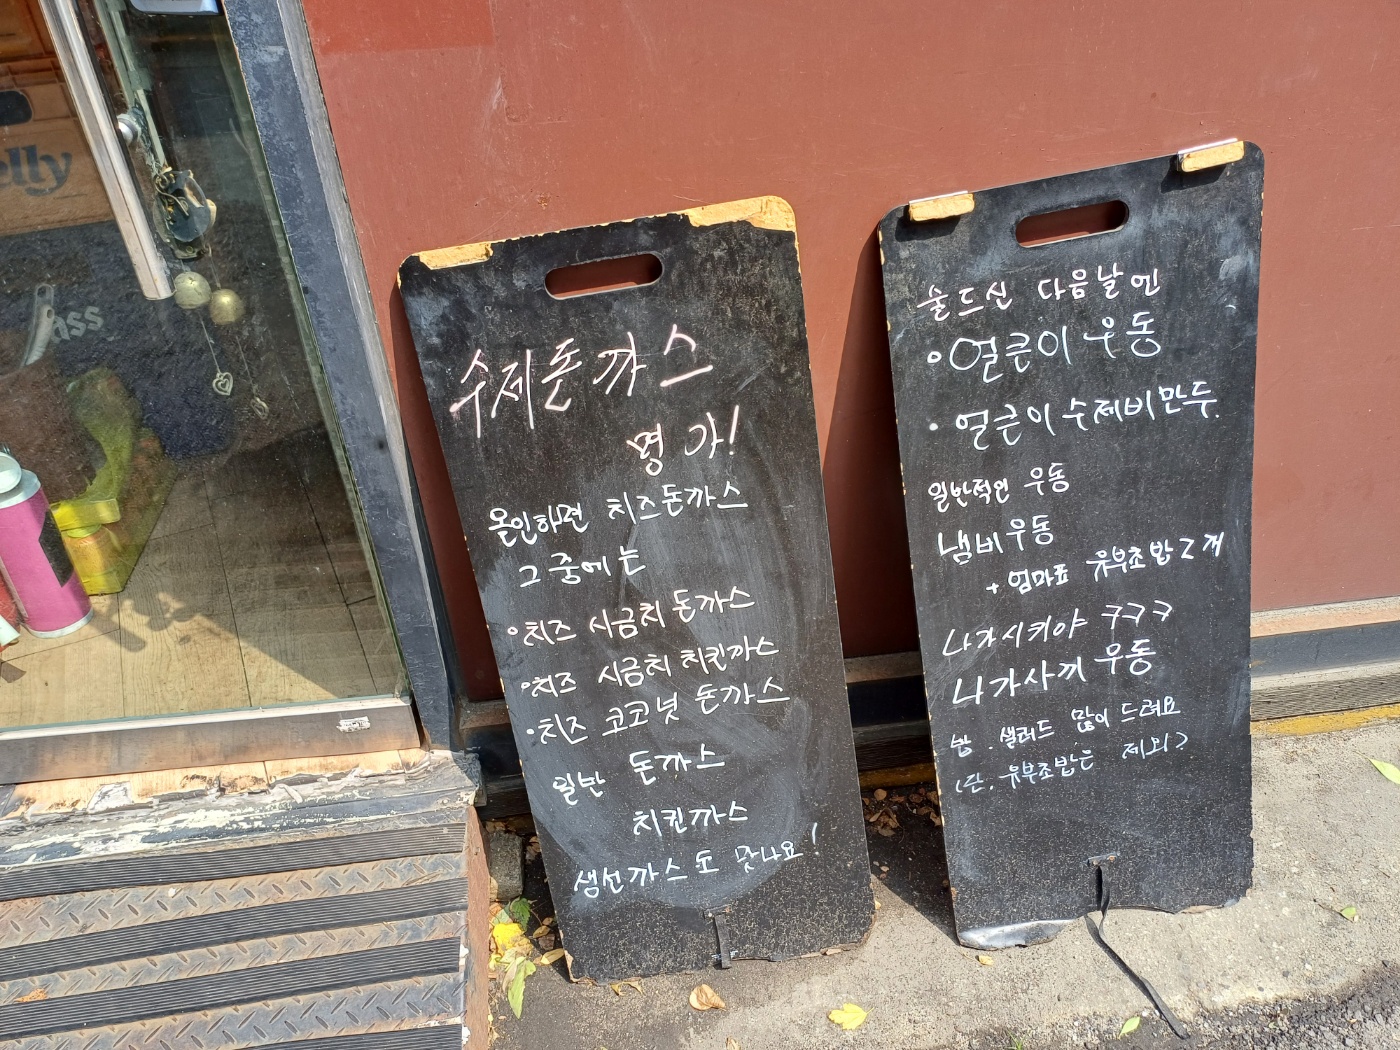 elly
ass
수제돈까스
명가!
올인하면 치즈돈까스
그 중에는
•치즈 시금치 돈까스
•치즈 시금치 치킨까스
•치즈 코코넛 돈까스
일반 돈까스
치킨까스
생선까스도 맛나요!
술드신 다음날엔
•얼큰이 우동
•얼큰이 수제비만두.
일반적엔 우동
냄비우동
+엄마표 유부초밥 2개
나가시키야 ㅋㅋㅋ
나가사끼 우동
밥. 샐러드 많이 드려요
(단. 유부초밥은 제외)